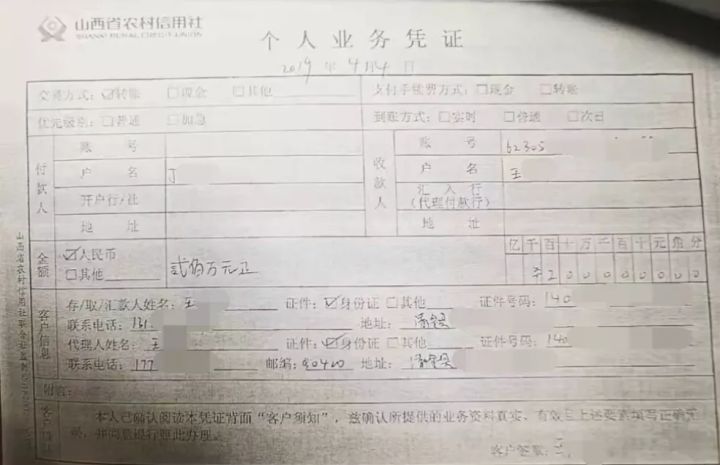 山西省农村信用社
SHANXI RURAL CREDIT UNION
个人业务凭证
2019年4月4日
交易方式：☑转账 □现金 □其他 支付手续费方式：□现金 □转账
优先级别：□普通 □加急 到账方式：□实时 □普通 □次日
付款人
账号
户名 丁
开户行/社
地址
收款人
账号 62305
户名 王
汇入行
(代理付款行)
地址
金额
☑人民币
□其他
贰佰万元正
亿千百十万千百十元角分
¥200000000
客户信息
存/取/汇款人姓名：王 证件：☑身份证 □其他 证件号码：140
联系电话：131 地址：
代理人姓名：王 证件：☑身份证 □其他 证件号码：140
联系电话：177 邮编： 地址：
附言：
本人已确认阅读本凭证背面“客户须知”，兹确认所提供的业务资料真实、有效且上述要素填写正确无
误，并同意银行据此办理。
客户签章：王
山西省农村信用社